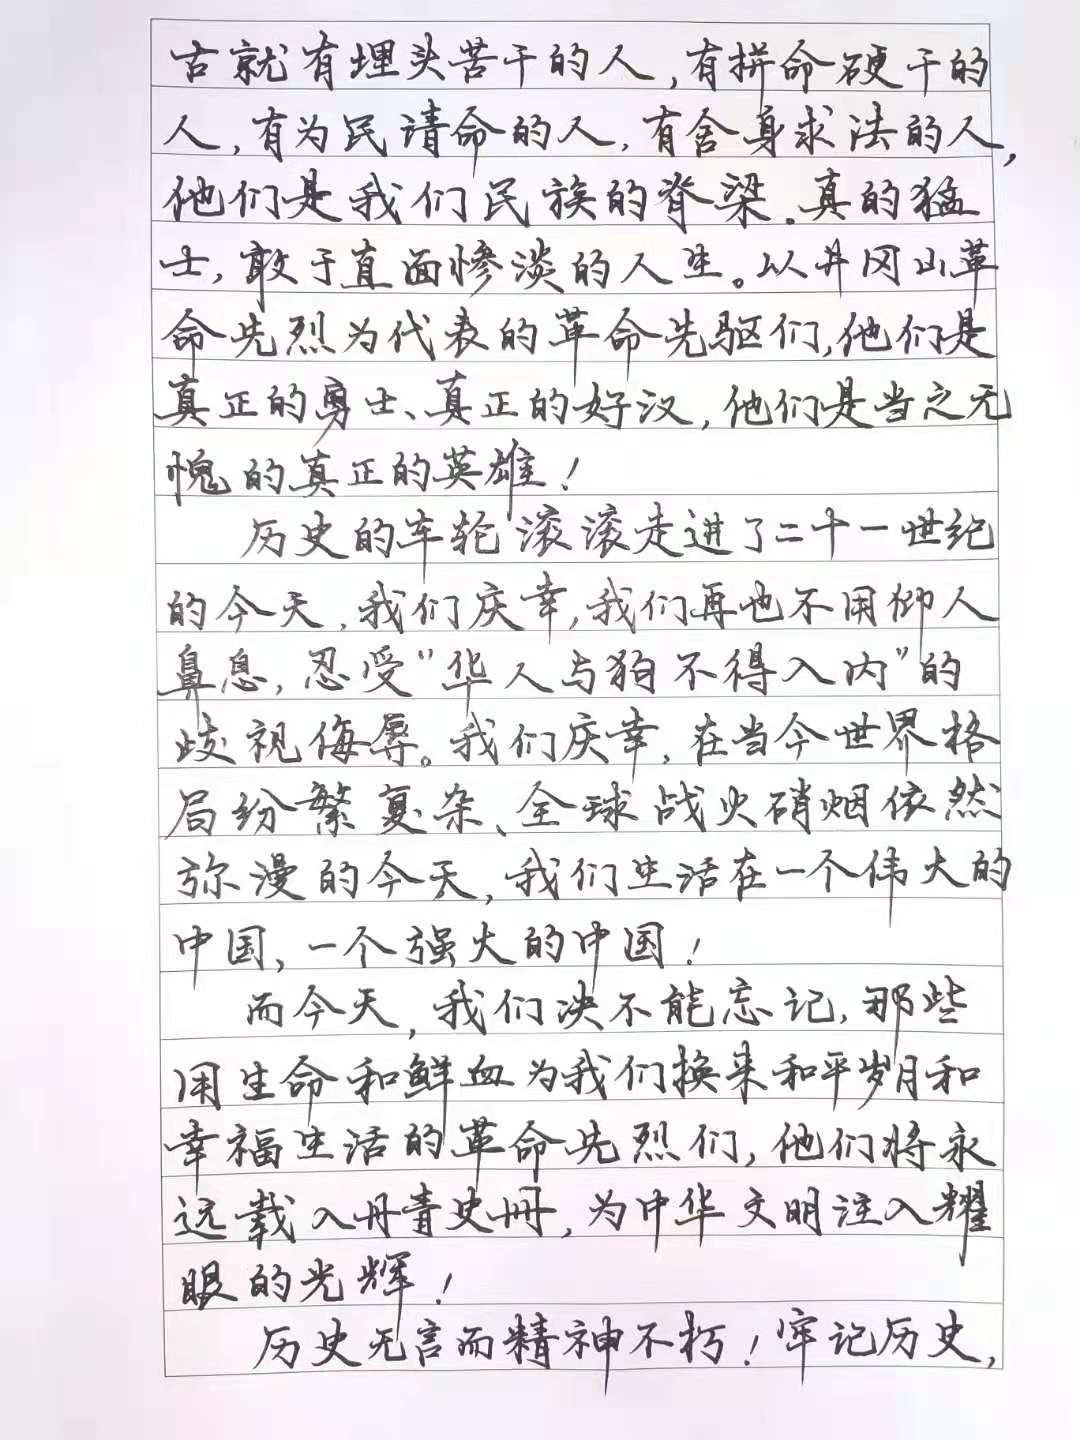 古就有埋头苦干的人,有拼命硬干的
人,有为民请命的人,有舍身求法的人,
他们是我们民族的脊梁。真的猛
士,敢于直面惨淡的人生。以井冈山革
命先烈为代表的革命先驱们,他们是
真正的勇士、真正的好汉,他们是当之无
愧的真正的英雄!
历史的车轮滚滚走进了二十一世纪
的今天,我们庆幸,我们再也不用仰人
鼻息,忍受"华人与狗不得入内"的
歧视侮辱。我们庆幸,在当今世界格
局纷繁复杂、全球战火硝烟依然
弥漫的今天,我们生活在一个伟大的
中国,一个强大的中国!
而今天,我们决不能忘记,那些
用生命和鲜血为我们换来和平岁月和
幸福生活的革命先烈们,他们将永
远载入丹青史册,为中华文明注入耀
眼的光辉!
历史无言而精神不朽!牢记历史,